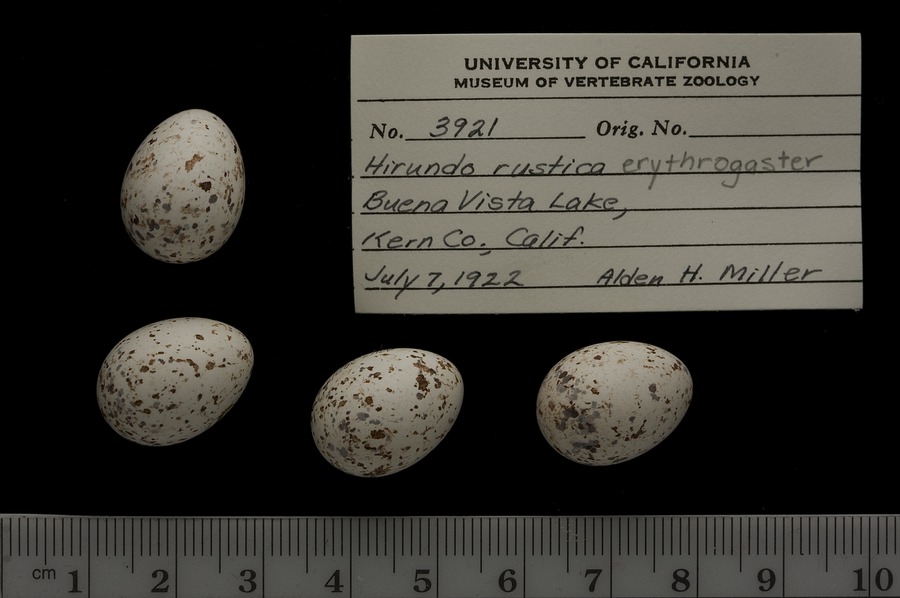 UNIVERSITY OF CALIFORNIA
MUSEUM OF VERTEBRATE ZOOLOGY
No. 3921 Orig. No.
Hirundo rustica erythrogaster
Buena Vista Lake,
Kern Co., Calif.
July 7, 1922 Alden H. Miller
cm 1 2 3 4 5 6 7 8 9 10